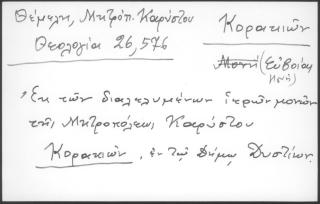 Θέμελη, Μητρόπ. Καρύστου
Θεολογία 26, 576
Κορακιῶν
Μονή (Εὐβοίας
Ἐκ τῶν διαλελυμένων ἱερῶν μονῶν
τῆς Μητροπόλεως Καρύστου
Κορακιῶν, ἐν τῷ Δήμῳ Δυστίων.